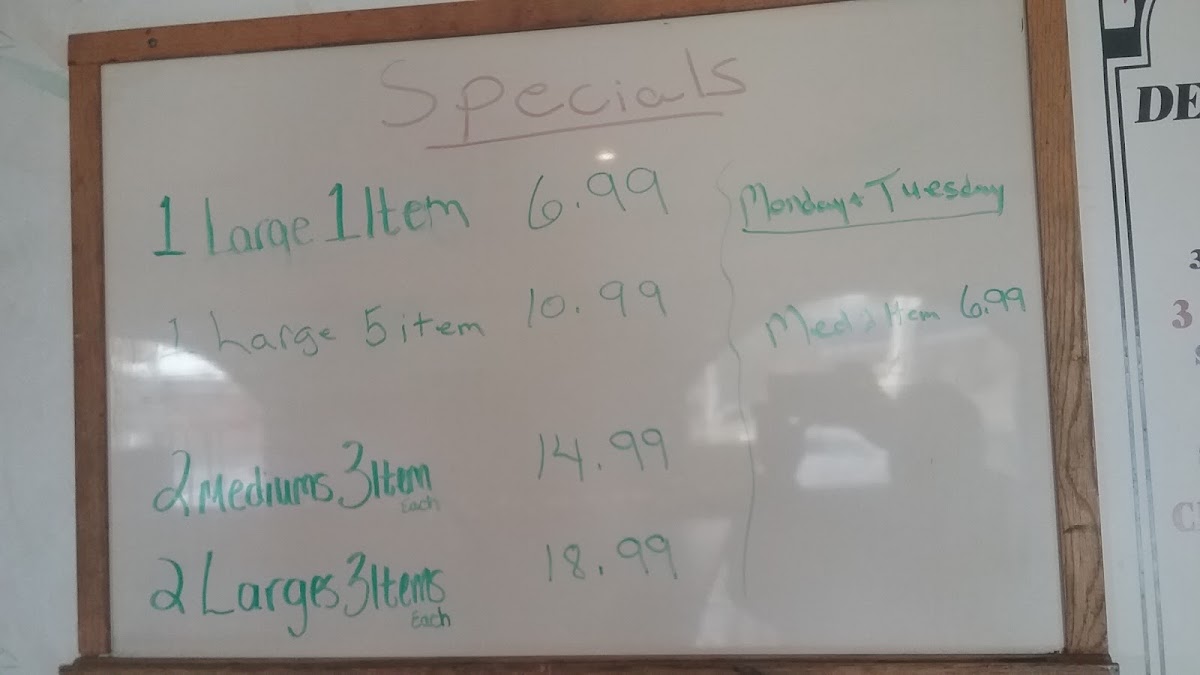 Specials
1 Large 1 Item 6.99
1 Large 5 item 10.99
2 Mediums 3 Item 14.99
Each
2 Larges 3 Items 18.99
Each
Monday + Tuesday
Med Item 6.99
DE
3
3